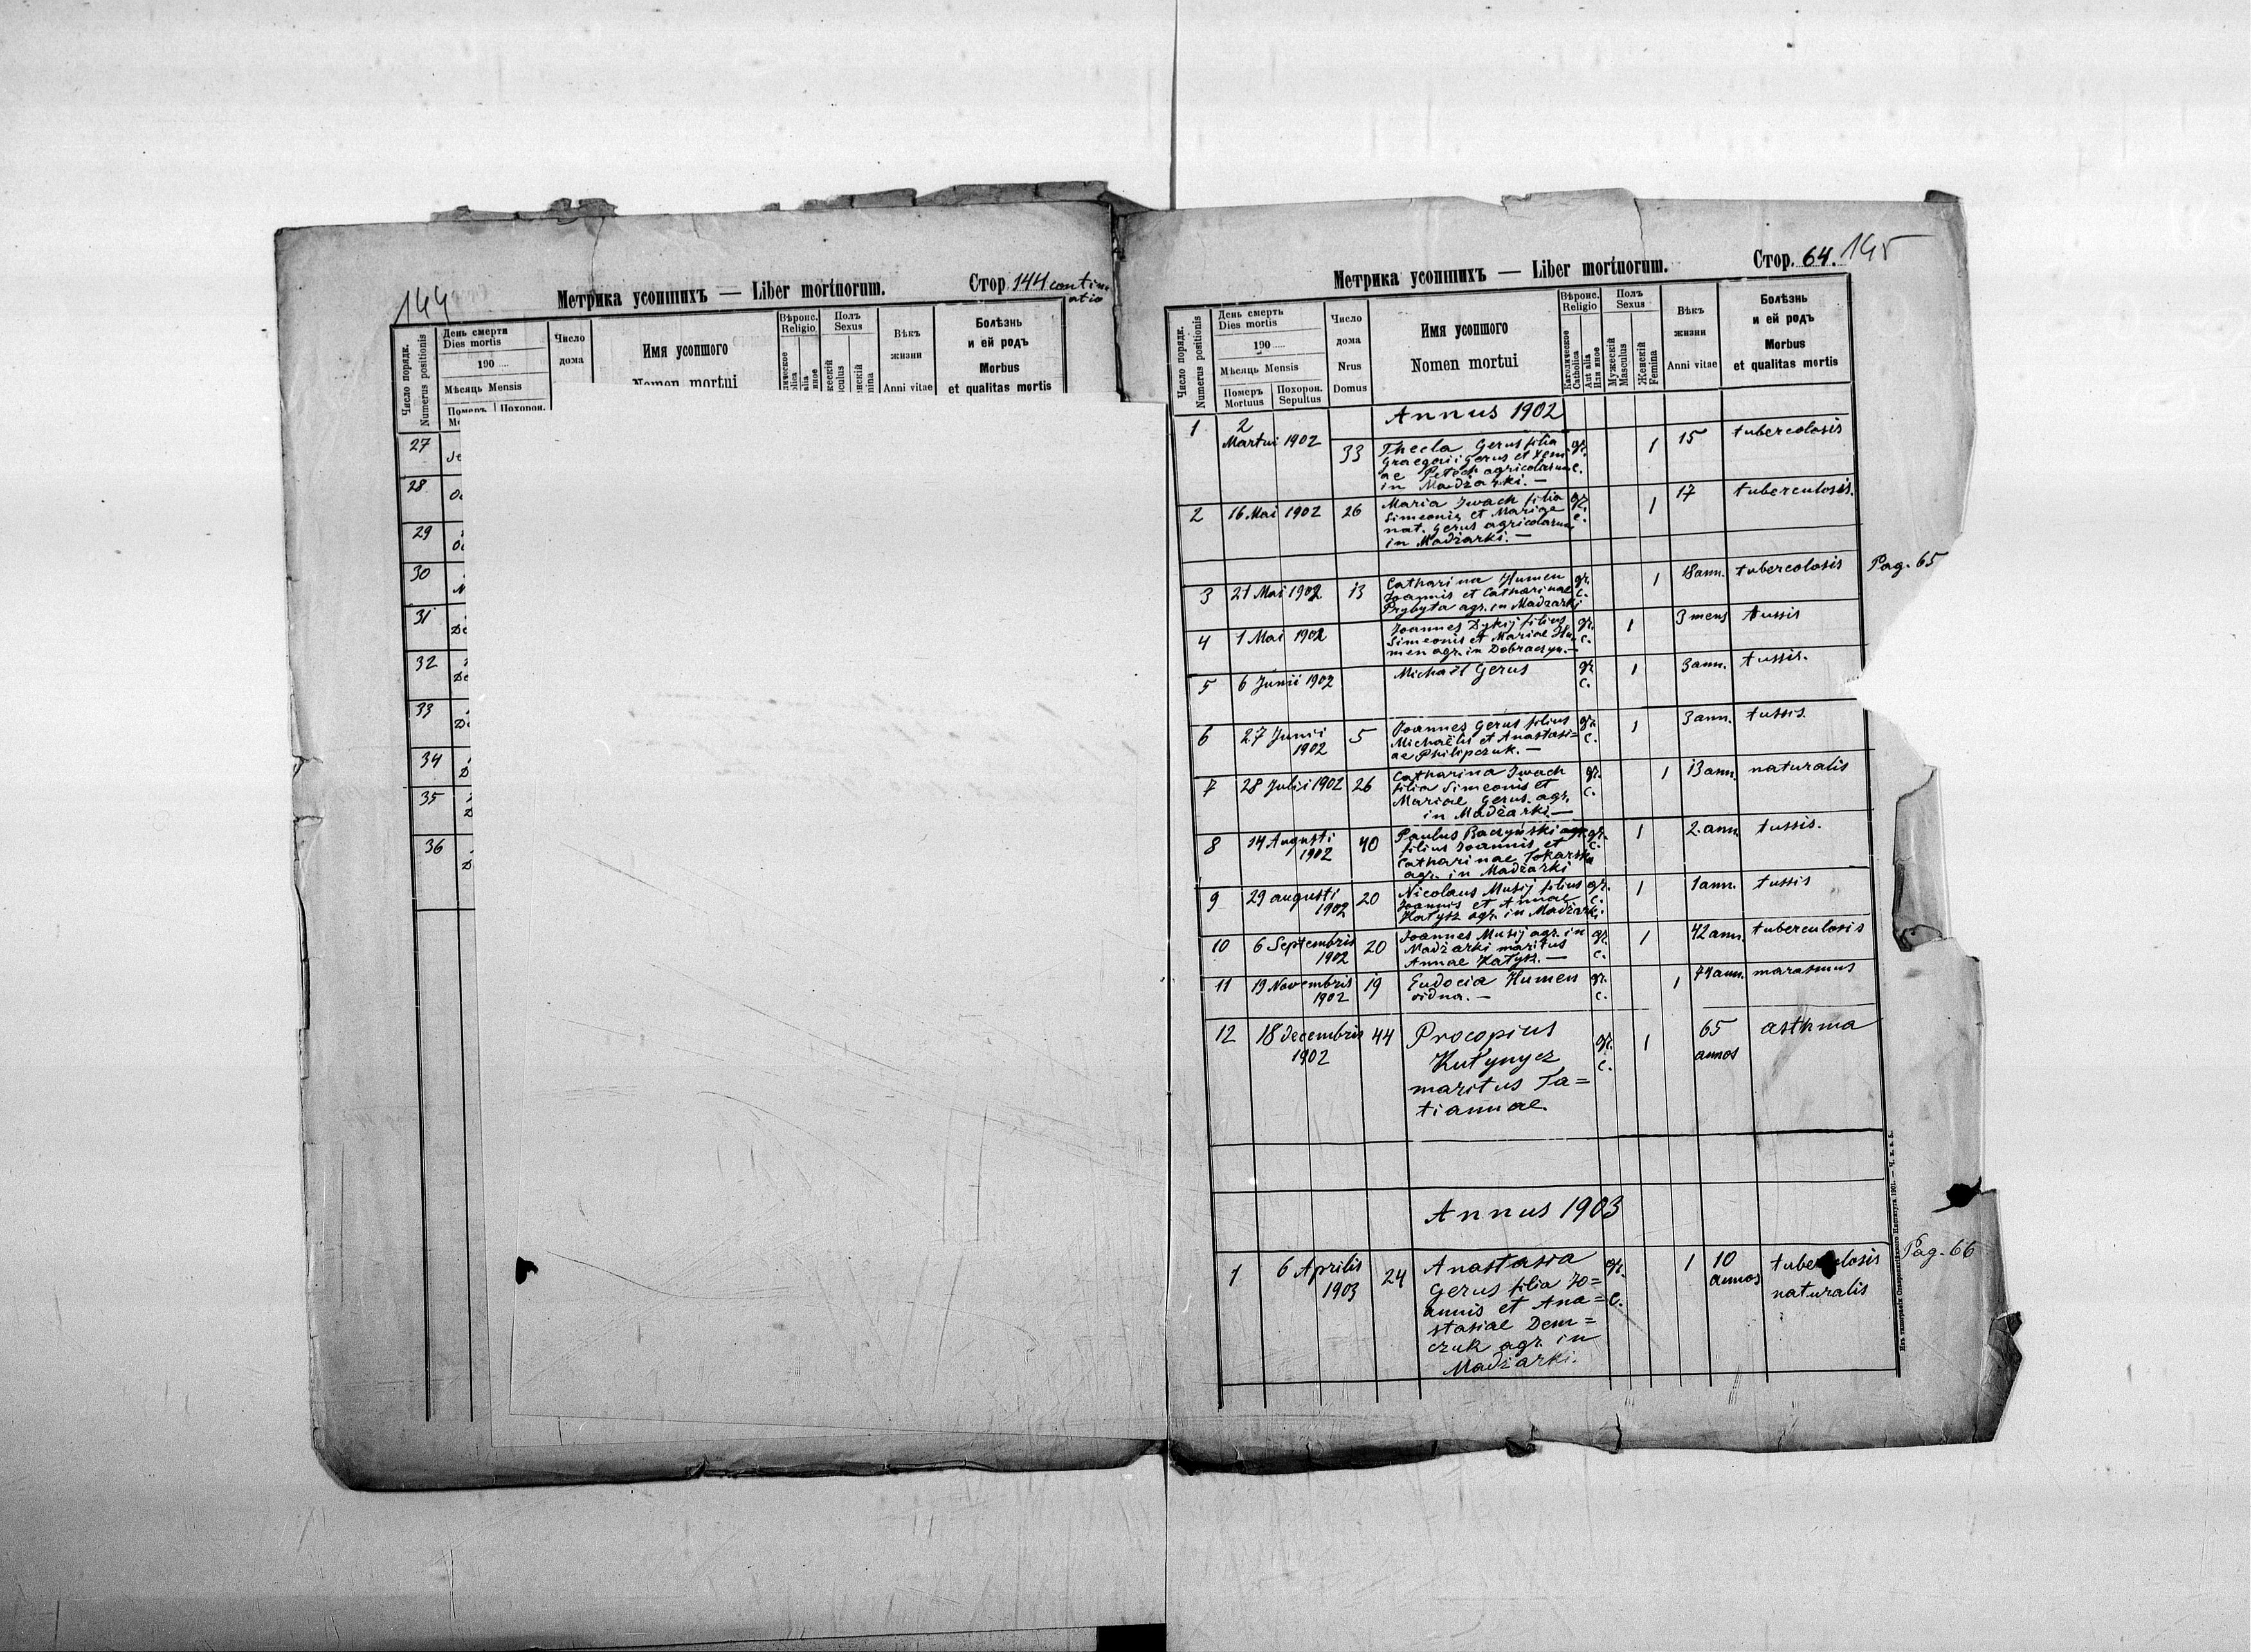 144
Метрика усопшихъ — Liber mortuorum.
Стор. 144 continu
atio
Число порядк.
Numerus positionis
День смерти
Dies mortis
190
Мѣсяць Mensis
Померъ
Похорон.
Число
дома
Имя усопшого
Nomen mortui
Вѣроис.
Religio
Полъ
Sexus
Вѣкъ
жизни
Anni vitae
Болѣзнь
и ей родъ
Morbus
et qualitas mortis
27
28
29
30
31
32
33
34
35
36
Метрика усопшихъ — Liber mortuorum.
Стор. 64. 145
Число порядк.
Numerus positionis
День смерть
Dies mortis
190
Мѣсяць Mensis
Померъ
Mortuus
Похорон.
Sepultus
Число
дома
Nrus
Domus
Имя усопшого
Nomen mortui
Вѣроис.
Religio
Католическое
Catholica
Aut alia
Или иное
Полъ
Sexus
Мужескій
Masculus
Женскій
Femina
Вѣкъ
жизни
Anni vitae
Болѣзнь
и ей родъ
Morbus
et qualitas mortis
Annus 1902
1 2 Martii 1902 33 Thecla Gerus filia gr. 1 15 tubercolosis
Graegorii Gerus et Xeni
ae Petoch agricolarum c.
in Madżarki. —
2 16 Mai 1902 26 Maria Iwach filia gr. 1 17 tuberculosis.
Simeonis et Mariae c.
nat. Gerus agricolarum
in Madżarki. —
3 21 Mai 1902 13 Catharina Humen gr. 1 18 ann. tubercolosis Pag. 65
Joannis et Catharinae c.
Prybyta agr. in Madzarki
4 1 Mai 1902 Joannes Dykij filius gr. 1 3 mens tussis
Simeonis et Mariae Hu c.
men agr. in Dobraczyn. —
5 6 Junii 1902 Michaël Gerus gr. 1 3 ann. tussis.
c.
6 27 Junii 5 Joannes Gerus filius gr. 1 3 ann. tussis.
1902 Michaëlis et Anastasi= c.
ae Philipczuk. —
7 28 Julii 1902 26 Catharina Iwach gr. 1 13 ann. naturalis
filia Simeonis et c.
Mariae Gerus agr.
in Madżarki —
8 14 Augusti 40 Paulus Baczyński agr. gr. 1 2. ann. tussis.
1902 filius Joannis et c.
Catharinae Tokarska
agr. in Madżarki
9 29 augusti 20 Nicolaus Musij filius gr. 1 1 ann. tussis
1902 Joannis et Annae c.
Hatysz agr. in Madżarki.
10 6 Septembris 20 Joannes Musij agr. in gr. 1 42 ann. tuberculosis
1902 Madżarki maritus
Annae Hatysz. — c.
11 19 Novembris 19 Eudocia Humen gr. 1 74 ann. marasmus
1902 vidna. — c.
12 18 decembris 44 Procopius gr. 1 65 asthma
1902 Kutynycz c. annos
maritus Ta=
tiannae.
Annus 1903
1 6 Aprilis 24 Anastasia gr. 1 10 tuberculosis Pag. 66
1903 Gerus filia Jo= annos naturalis
annis et Ana= c.
stasiae Dem=
czuk agr. in
Madżarki.